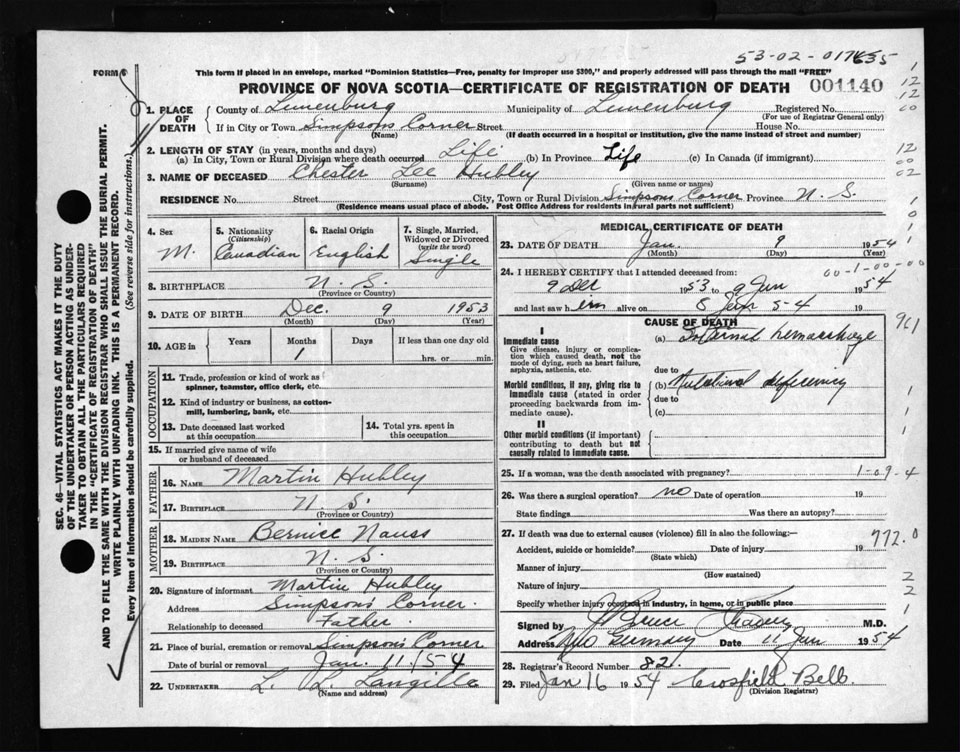 53-02-017635
FORM 6
This form if placed in an envelope, marked "Dominion Statistics—Free, penalty for improper use $300," and properly addressed will pass through the mail "FREE"
PROVINCE OF NOVA SCOTIA—CERTIFICATE OF REGISTRATION OF DEATH 001140
1. PLACE OF DEATH
County of Lunenburg Municipality of Lunenburg Registered No.
(For use of Registrar General only)
If in City or Town Simpsons Corner Street House No.
(Name) (If death occurred in a hospital or institution, give the name instead of street and number)
2. LENGTH OF STAY (in years, months and days)
(a) In City, Town or Rural Division where death occurred Life (b) In Province Life (c) In Canada (if immigrant)
3. NAME OF DECEASED Chester Lee Hubley
(Surname) (Given name or names)
RESIDENCE No. Street City, Town or Rural Division Simpsons Corner Province N. S.
(Residence means usual place of abode. Post Office Address for residents in rural parts not sufficient)
4. Sex M.
5. Nationality (Citizenship) Canadian
6. Racial Origin English
7. Single, Married, Widowed or Divorced (write the word) Single
8. BIRTHPLACE N. S.
(Province or Country)
9. DATE OF BIRTH Dec. 9 1953
(Month) (Day) (Year)
10. AGE in Years Months 1 Days If less than one day old
hrs. or min.
OCCUPATION
11. Trade, profession or kind of work as
spinner, teamster, office clerk, etc.
12. Kind of industry or business, as cotton-
mill, lumbering, bank, etc.
13. Date deceased last worked
at this occupation
14. Total yrs. spent in
this occupation
15. If married give name of wife
or husband of deceased
FATHER
16. NAME Martin Hubley
17. BIRTHPLACE N S
(Province or Country)
MOTHER
18. MAIDEN NAME Bernice Nauss
19. BIRTHPLACE N. S.
(Province or Country)
20. Signature of informant Martin Hubley
Address Simpson's Corner.
Relationship to deceased Father.
21. Place of burial, cremation or removal Simpsons Corner
Date of burial or removal Jan. 11/54
22. UNDERTAKER L. L. Langille
(Name and address)
MEDICAL CERTIFICATE OF DEATH
23. DATE OF DEATH Jan. 9 1954
(Month) (Day) (Year)
00-1-00-00
24. I HEREBY CERTIFY that I attended deceased from:
9 Dec 1953 to 9 Jan 1954
and last saw him alive on 8 Jan 54 19
CAUSE OF DEATH
I
Immediate cause
Give disease, injury or complica-
tion which caused death, not the
mode of dying, such as heart failure,
asphyxia, asthenia, etc.
(a) Internal hemorrhage
due to
Morbid conditions, if any, giving rise to
immediate cause (stated in order
proceeding backwards from im-
mediate cause).
(b) Nutritional deficiency
due to
(c)
II
Other morbid conditions (if important)
contributing to death but not
causally related to immediate cause.
25. If a woman, was the death associated with pregnancy? 1-09-4
26. Was there a surgical operation? no Date of operation 19
State findings Was there an autopsy?
27. If death was due to external causes (violence) fill in also the following:—
Accident, suicide or homicide? Date of injury 19
(State which)
772.0
Manner of injury
(How sustained)
Nature of injury
Specify whether injury occurred in industry, in home, or in public place
Signed by Bruce M.D.
Address New Germany Date 11 Jan 1954
28. Registrar's Record Number 82.
29. Filed Jan 16 1954 Crosfield Bell
(Division Registrar)
SEC. 46—VITAL STATISTICS ACT MAKES IT THE DUTY
OF THE UNDERTAKER OR PERSON ACTING AS UNDER-
TAKER TO OBTAIN ALL THE PARTICULARS REQUIRED
IN THE "CERTIFICATE OF REGISTRATION OF DEATH"
AND TO FILE THE SAME WITH THE DIVISION REGISTRAR WHO SHALL ISSUE THE BURIAL PERMIT.
WRITE PLAINLY WITH UNFADING INK. THIS IS A PERMANENT RECORD.
Every item of information should be carefully supplied. (See reverse side for instructions.)
1
12
12
60
12
00
02
1
0
1
961
1
1
1
2
2
1